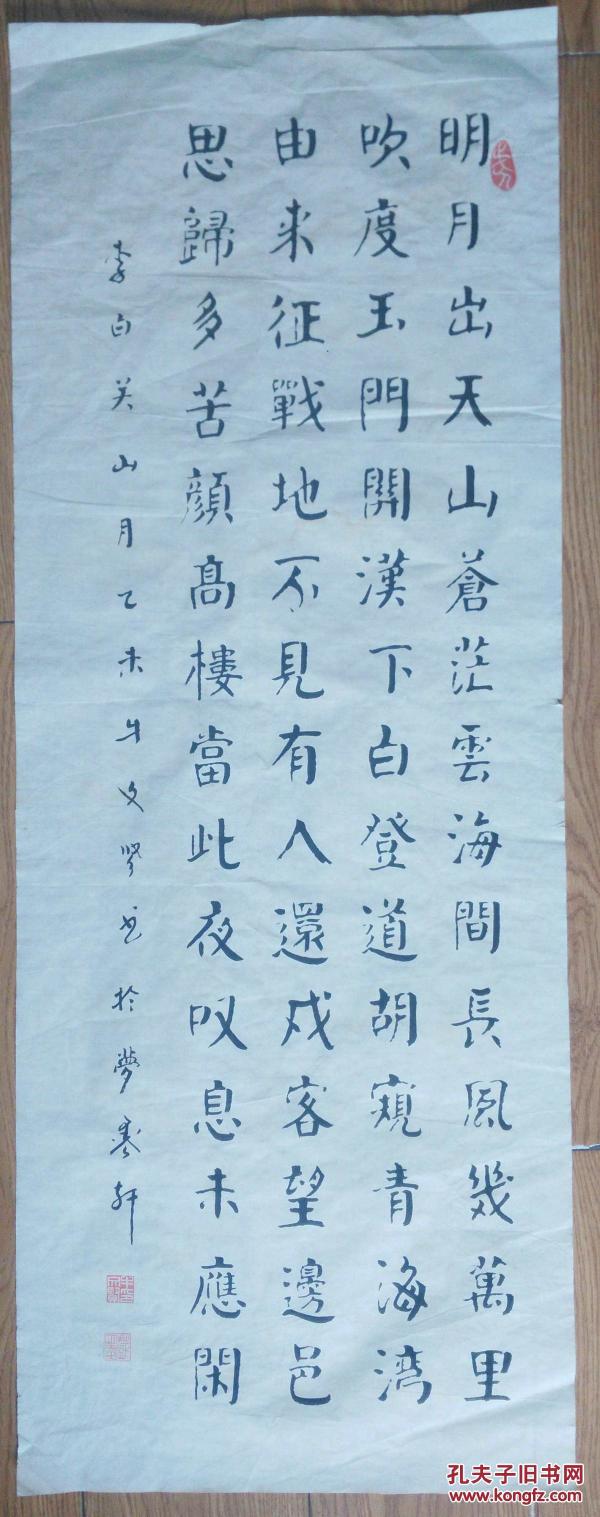 明月出天山蒼茫雲海間長風幾萬里
吹度玉門關漢下白登道胡窺青海湾
由来征戰地不見有人還戍客望邊邑
思歸多苦顔高樓當此夜叹息未應閑
李白关山月乙未牛文學书於夢寒軒
孔夫子旧书网
www.kongfz.com